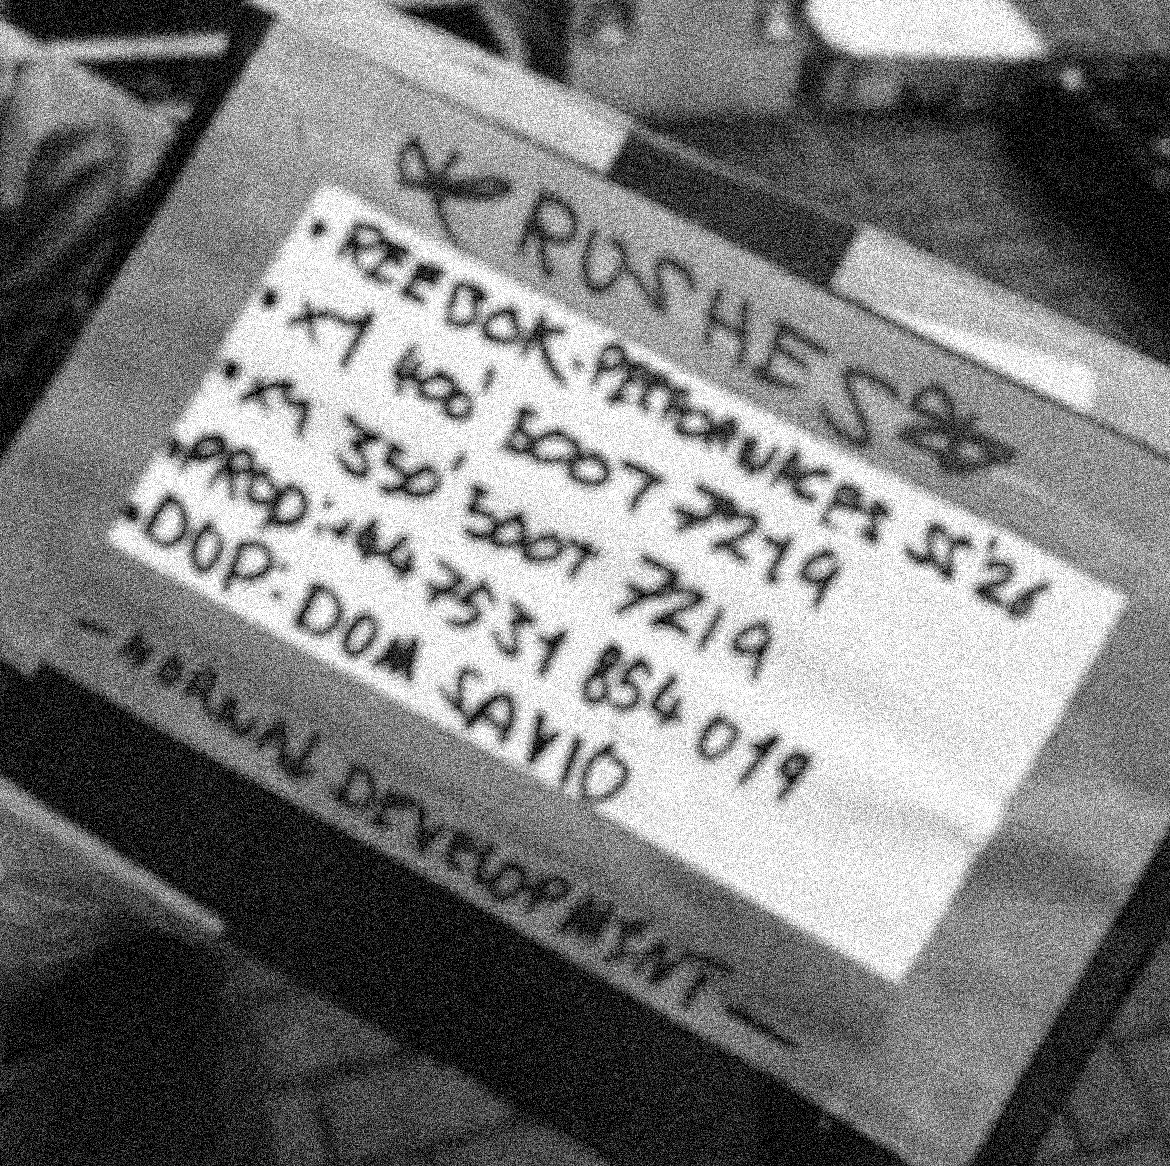 RUSHES
• REEBOK - PERFORMANCE SS'26
• X1 400' 500T 7219
• X1 350' 500T 7219
• PROD: +44 7531 854 019
• DOP: DOM SAVIO
- NORMAL DEVELOPMENT -